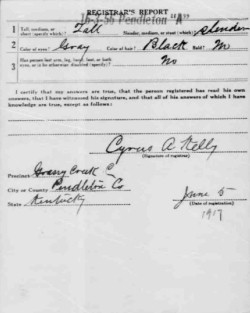 REGISTRAR'S REPORT
16-3-56 Pendleton A
1 Tall, medium, or short (specify which)? Tall Slender, medium, or stout (which)? Slender
2 Color of eyes? Gray Color of hair? Black Bald? No
3 Has person lost arm, leg, hand, foot, or both eyes, or is he otherwise disabled (specify)? No
I certify that my answers are true, that the person registered has read his own
answers, that I have witnessed his signature, and that all of his answers of which I have
knowledge are true, except as follows:
Cyrus A. Kelly
(Signature of registrar)
Precinct Grassy Creek
City or County Pendleton Co
State Kentucky
June 5
(Date of registration)
1917